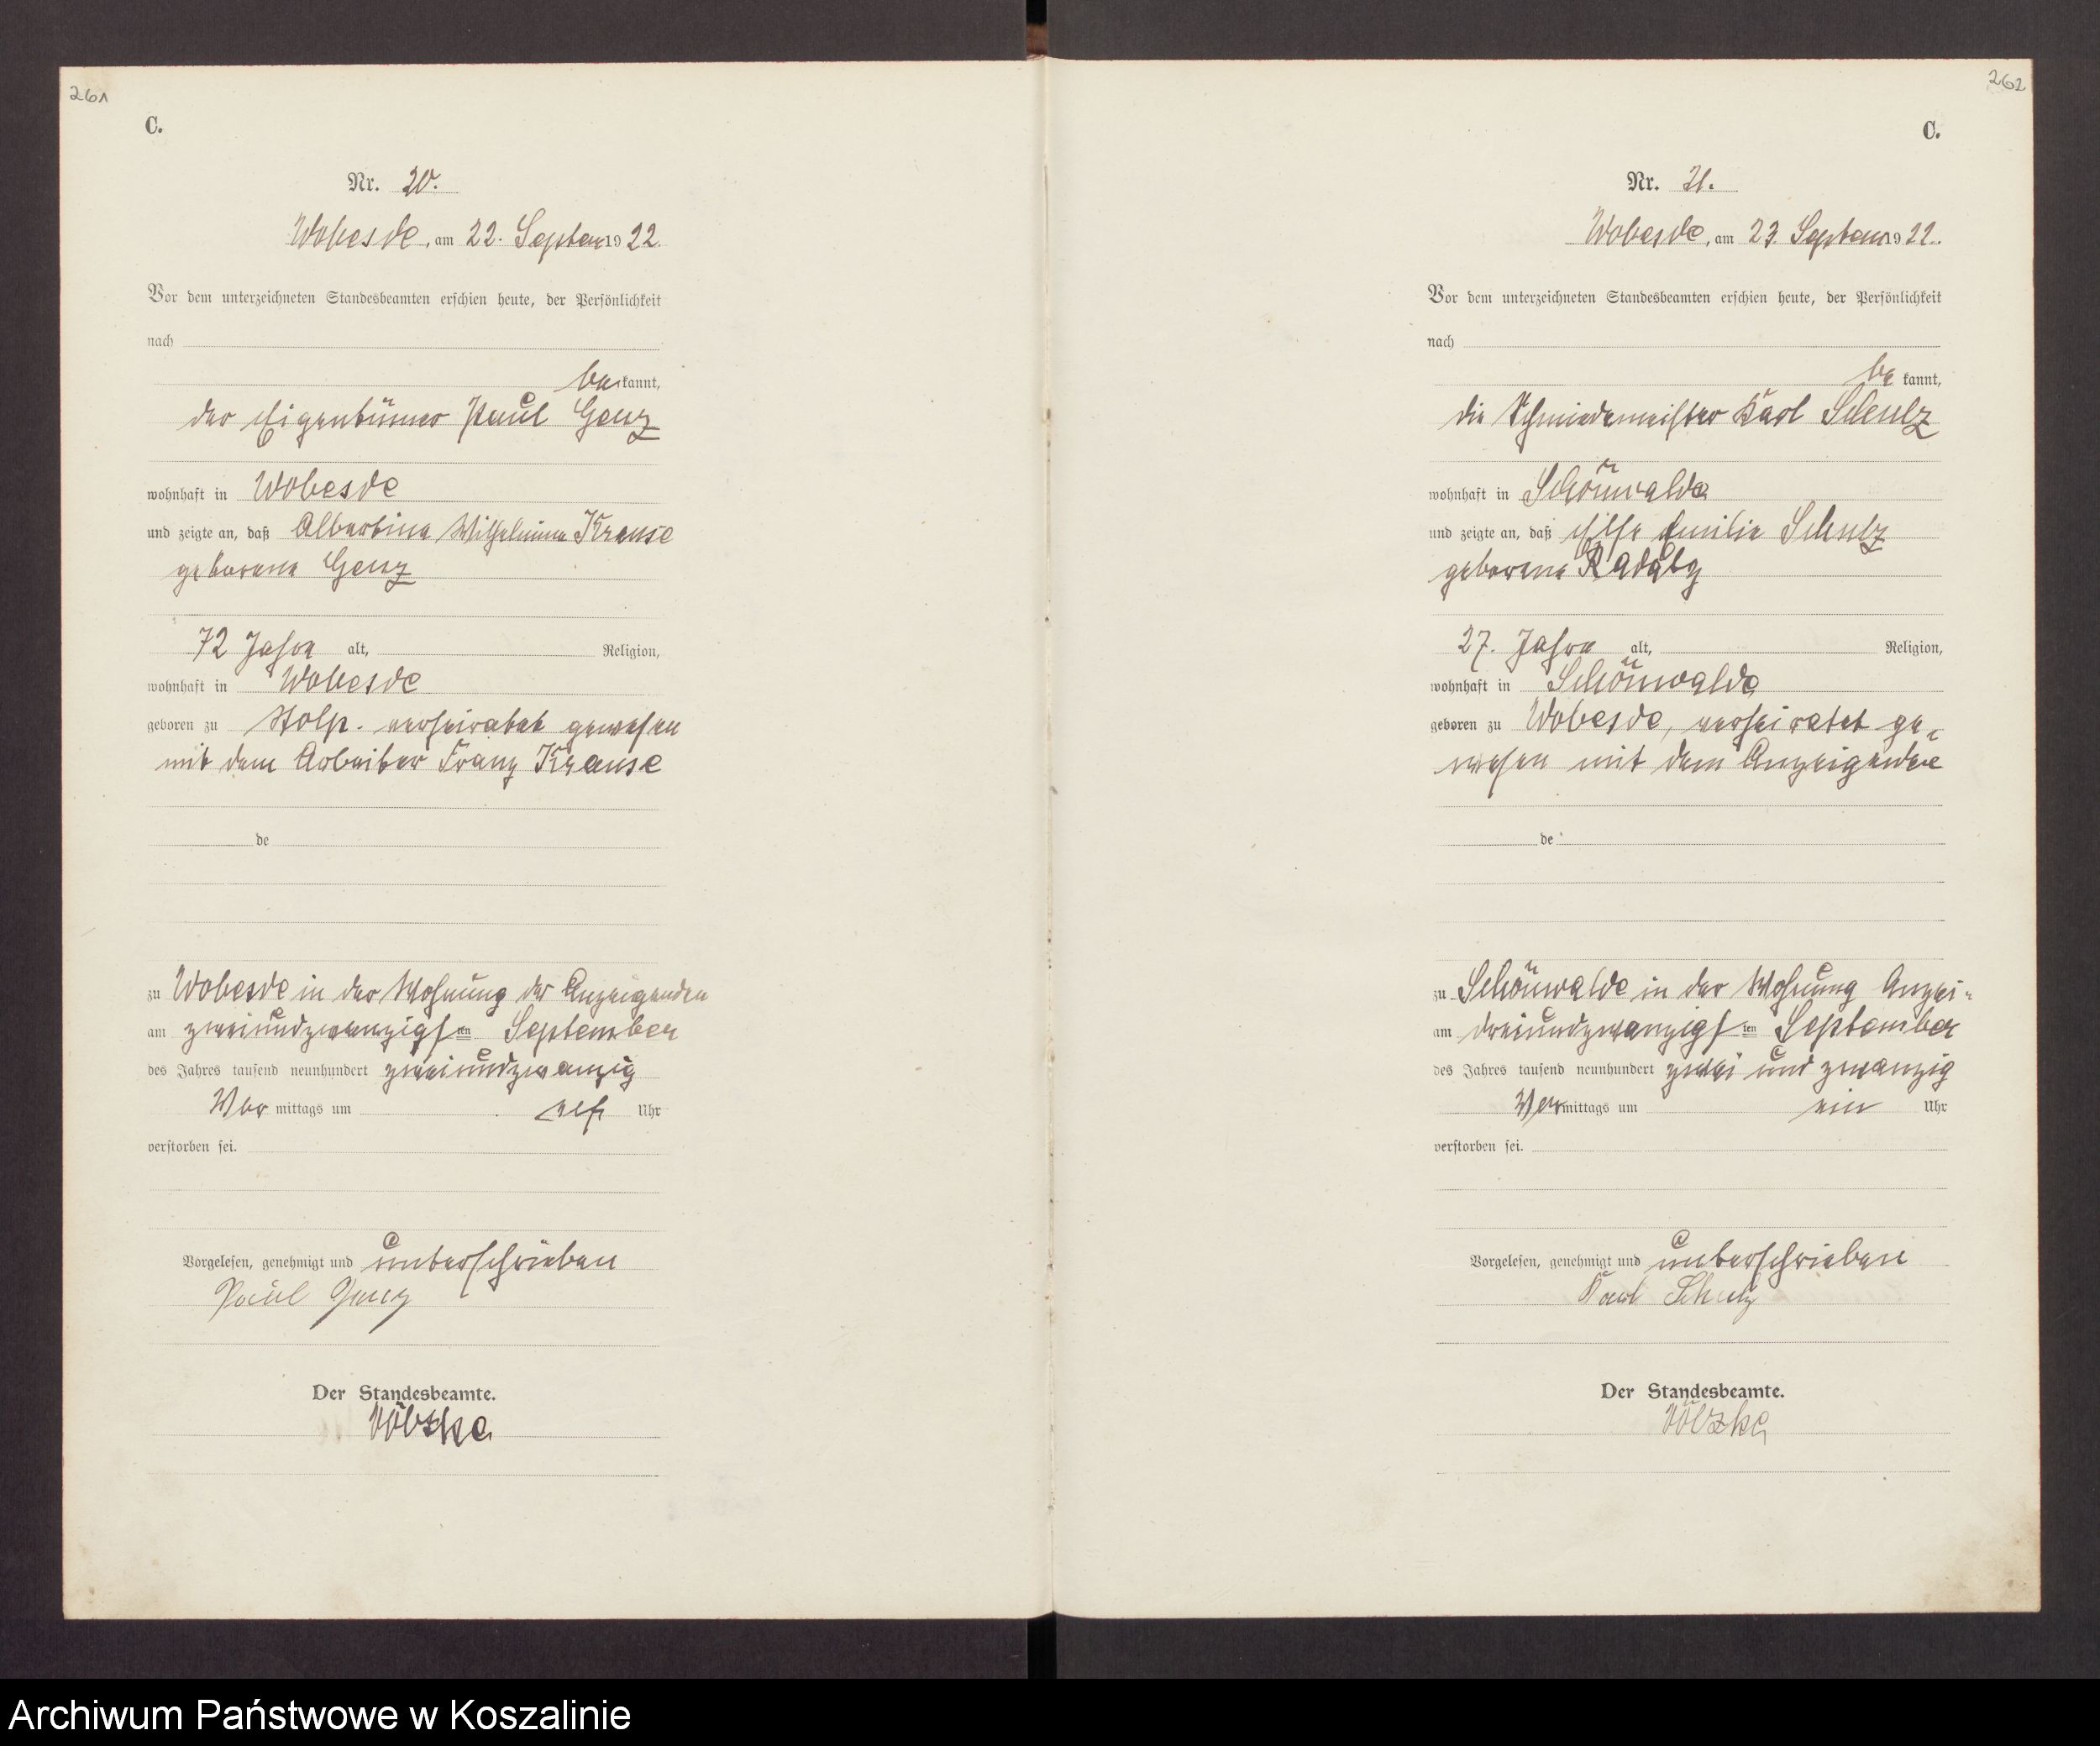 261
C.
Nr. 20.
Wobesde, am 22. Septem 1922.
Vor dem unterzeichneten Standesbeamten erschien heute, der Persönlichkeit
nach
be kannt,
der Eigentümer Paul Genz
wohnhaft in Wobesde
und zeigte an, daß Albertine Wilhelmine Krause
geborene Genz
72 Jahre alt, Religion,
wohnhaft in Wobesde
geboren zu Stolp. verheiratet gewesen
mit dem Arbeiter Franz Krause
de
zu Wobesde in der Wohnung des Anzeigenden
am zweiundzwanzigsten September
des Jahres tausend neunhundert zweiundzwanzig
Vor mittags um elf Uhr
verstorben sei.
Vorgelesen, genehmigt und unterschrieben
Paul Genz
Der Standesbeamte.
Völzke
262
C.
Nr. 21.
Wobesde, am 23 Septem 1922.
Vor dem unterzeichneten Standesbeamten erschien heute, der Persönlichkeit
nach
be kannt,
die Schmiedemeister Karl Schulz
wohnhaft in Schönwalde
und zeigte an, daß Emilie Schulz
geborene
27. Jahre alt, Religion,
wohnhaft in Schönwalde
geboren zu Wobesde, verheiratet ge-
wesen mit dem Anzeigende
de
zu Schönwalde in der Wohnung Anzei-
am dreiundzwanzigsten September
des Jahres tausend neunhundert zwei und zwanzig
Vor mittags um ein Uhr
verstorben sei.
Vorgelesen, genehmigt und unterschrieben
Karl Schulz
Der Standesbeamte.
Völzke
Archiwum Państwowe w Koszalinie